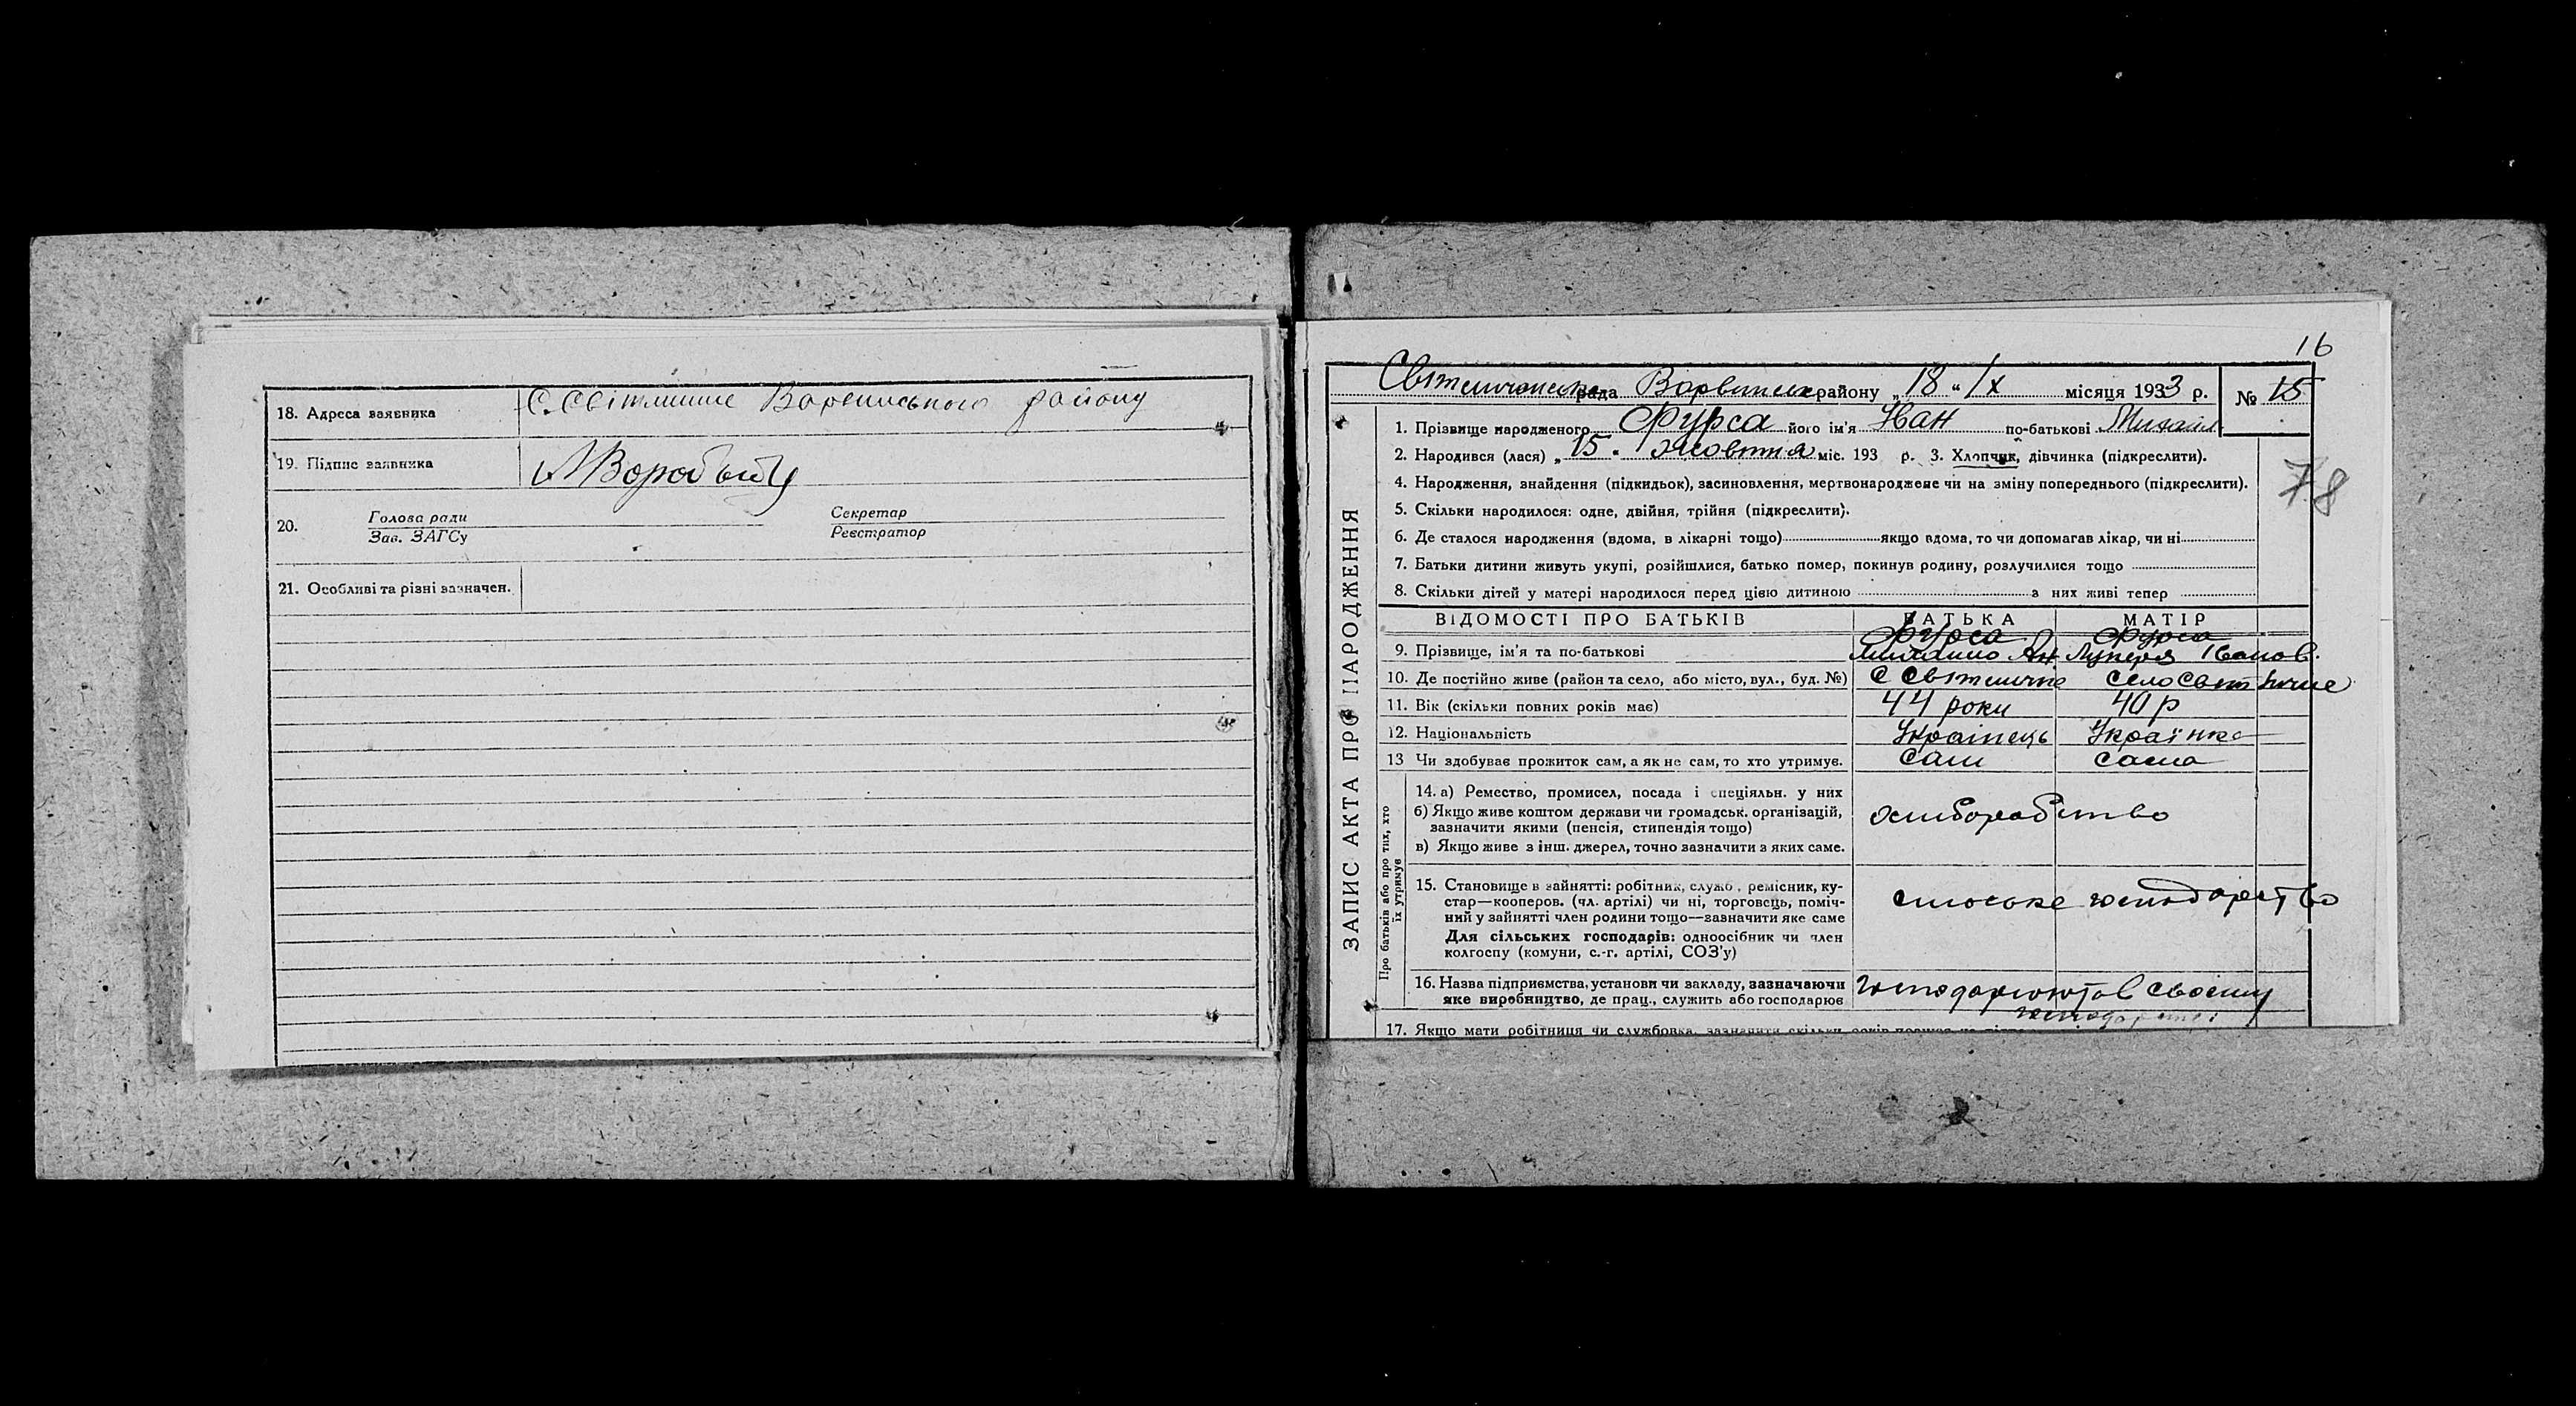 18. Адреса заявника С. Світличне Варвинського району
19. Підпис заявника
20. Голова ради Секретар
Зав. ЗАГСу Реєстратор
21. Особливі та різні зазначен.
16
рада району „18“ IX місяця 1933 р. № 15
1. Прізвище народженого Фурса його ім'я Іван по-батькові Михаил
2. Народився (лася) „15“ Жовтня міс. 193 р. 3. Хлопчик, дівчинка (підкреслити).
4. Народження, знайдення (підкидьок), засиновлення, мертвонароджене чи на зміну попереднього (підкреслити).
78
5. Скільки народилося: одне, двійня, трійня (підкреслити).
6. Де сталося народження (вдома, в лікарні тощо) якщо вдома, то чи допомагав лікар, чи ні
7. Батьки дитини живуть укупі, розійшлися, батько помер, покинув родину, розлучилися тощо
8. Скільки дітей у матері народилося перед цією дитиною з них живі тепер
ЗАПИС АКТА ПРО НАРОДЖЕННЯ
ВІДОМОСТІ ПРО БАТЬКІВ БАТЬКА МАТІР
Фурса Фурса
9. Прізвище, ім'я та по-батькові Ан Іванов.
10. Де постійно живе (район та село, або місто, вул., буд. №) С Світличне село Світличне
11. Вік (скільки повних років має) 44 роки 40 р
12. Національність Українець Українка
13 Чи здобуває прожиток сам, а як не сам, то хто утримує. Сам сама
Про батьків або про тих, хто їх утримує
14. а) Ремество, промисел, посада і спеціяльн. у них
б) Якщо живе коштом держави чи громадськ. організацій,
зазначити якими (пенсія, стипендія тощо)
хліборобство
в) Якщо живе з інш. джерел, точно зазначити з яких саме.
15. Становище в зайнятті: робітник, служб., ремісник, ку-
стар—кооперов. (чл. артілі) чи ні, торговець, поміч-
ний у зайнятті член родини тощо—зазначити яке саме
сільське господарство
Для сільських господарів: одноосібник чи член
колгоспу (комуни, с.-г. артілі, СОЗ'у)
16. Назва підприємства, установи чи закладу, зазначаючи
яке виробництво, де прац., служить або господарює
господарюють в своєму
господарстві
17. Якщо мати робітниця чи службовка, зазначити скільки